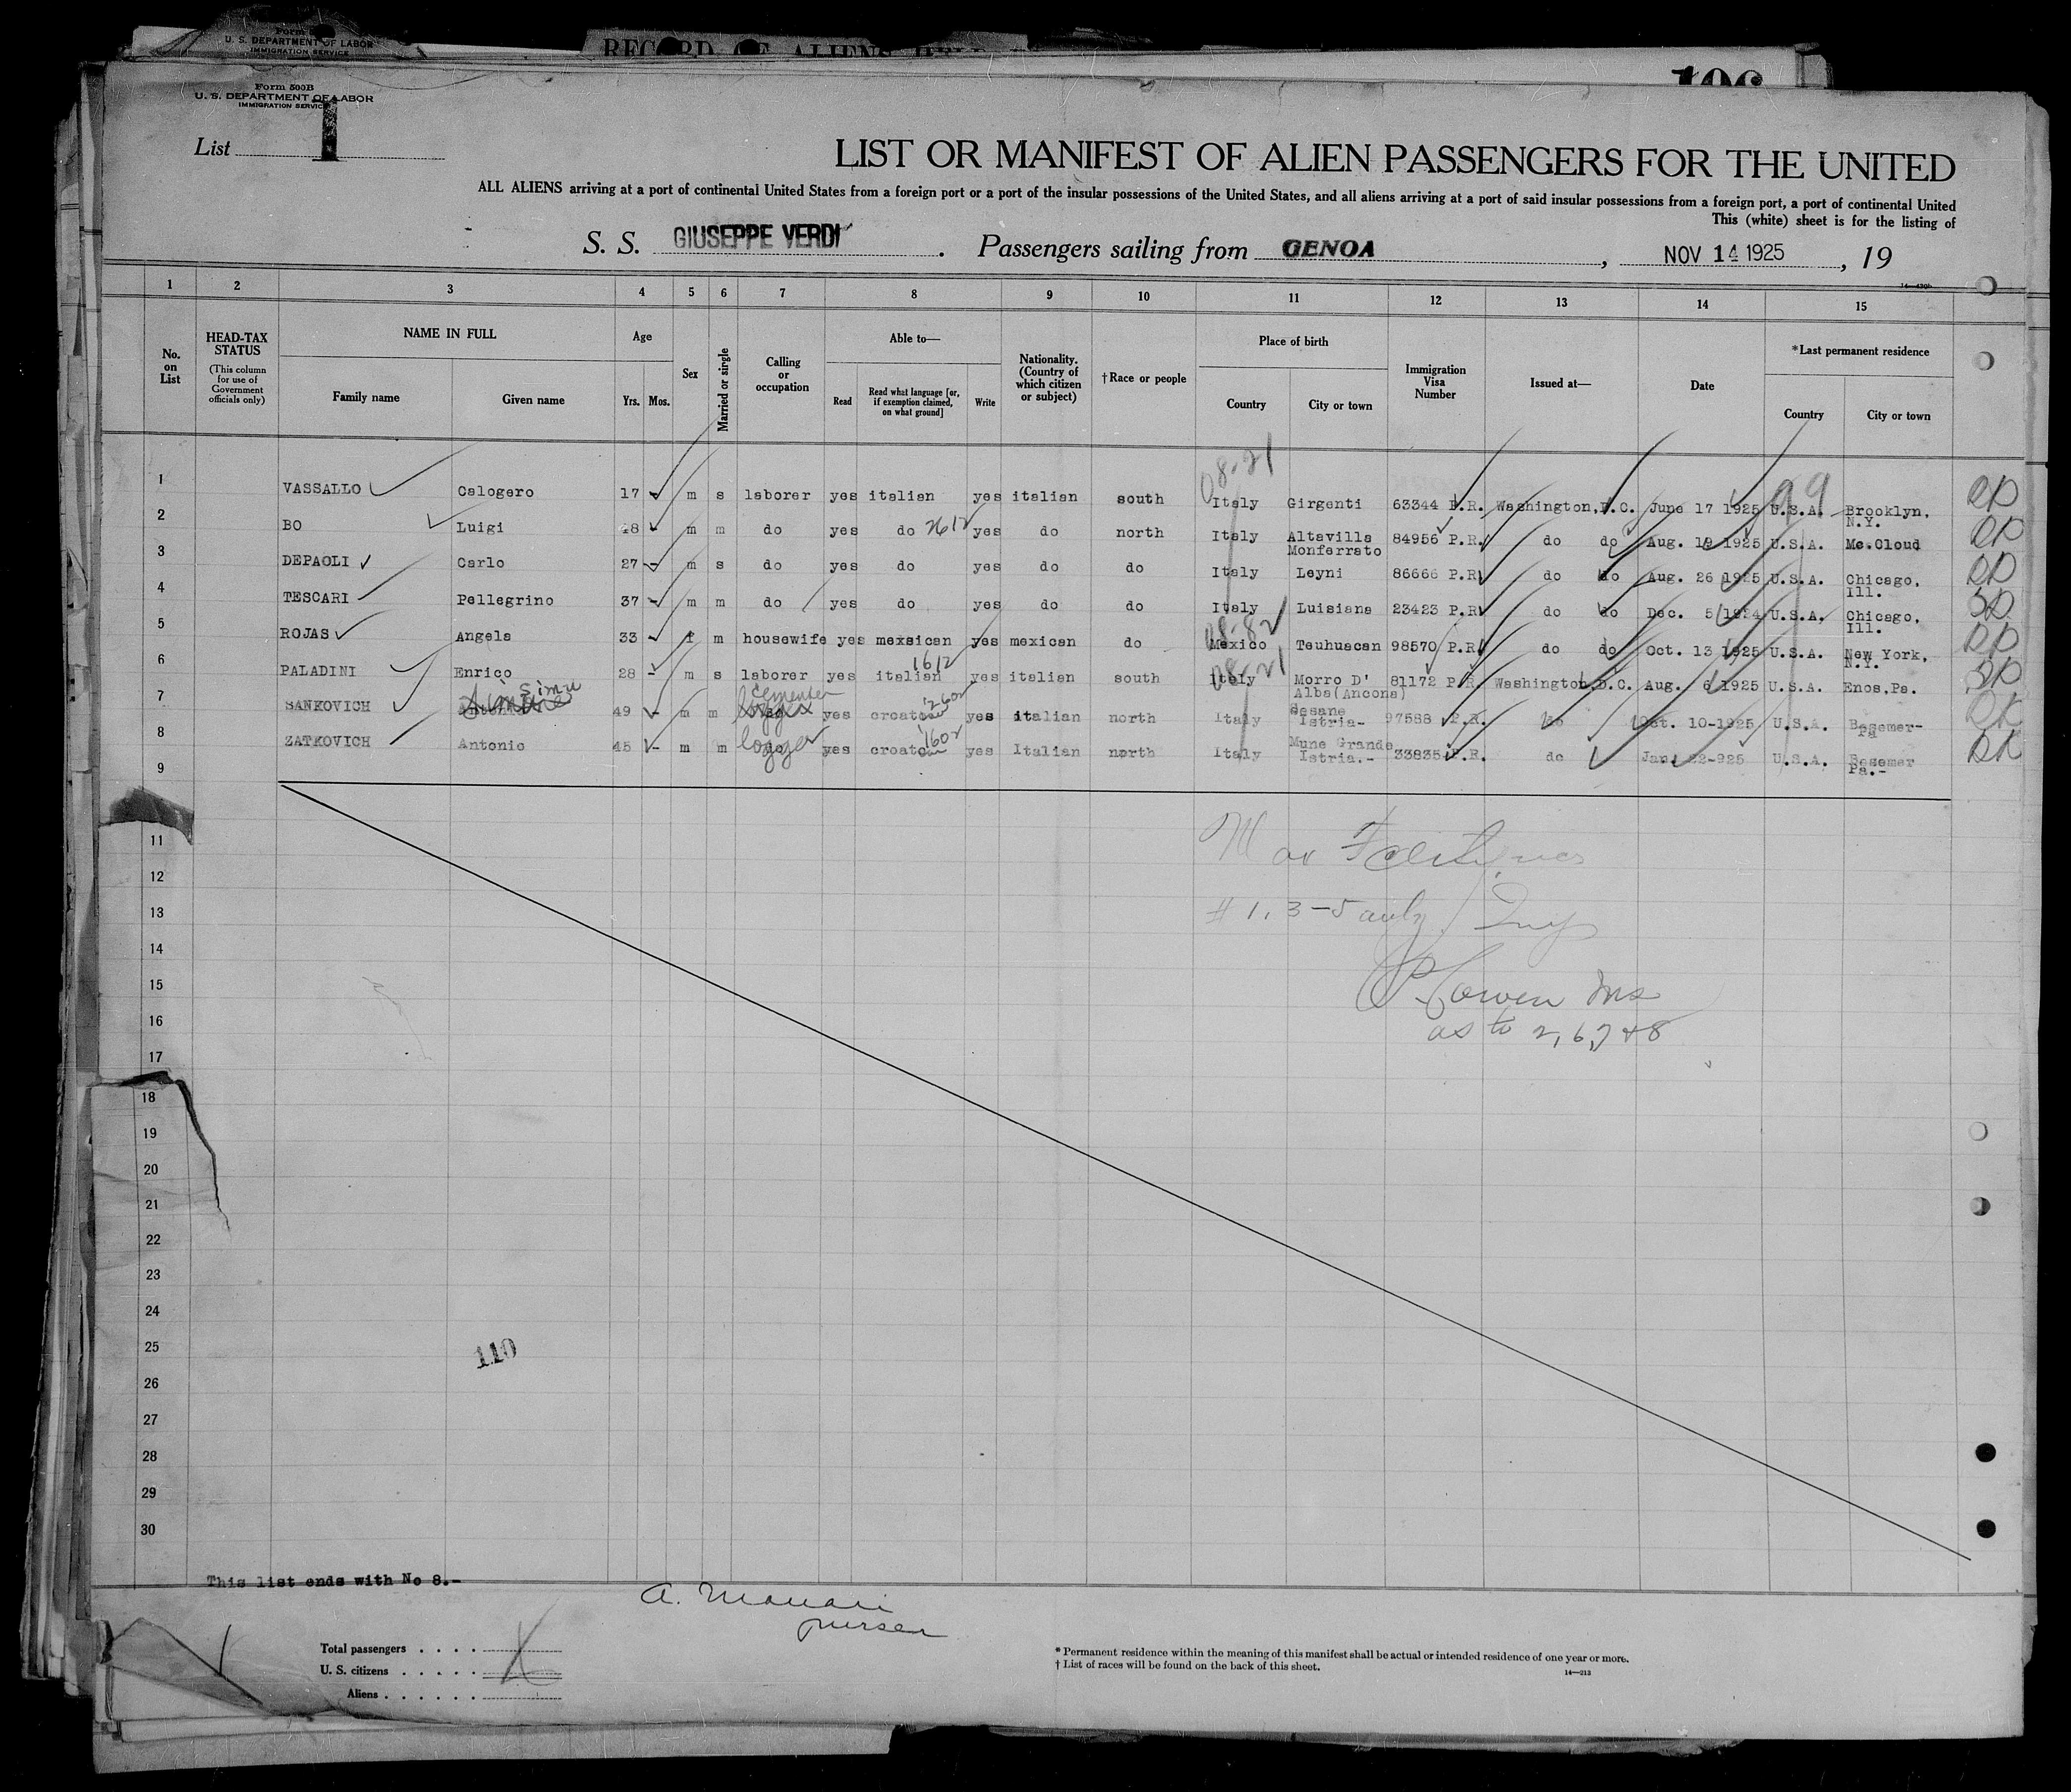 Form 500B
U. S. DEPARTMENT OF LABOR
IMMIGRATION SERVICE
RECORD OF ALIENS HELD
Form 500B
U. S. DEPARTMENT OF LABOR
IMMIGRATION SERVICE
List 1
LIST OR MANIFEST OF ALIEN PASSENGERS FOR THE UNITED
ALL ALIENS arriving at a port of continental United States from a foreign port or a port of the insular possessions of the United States, and all aliens arriving at a port of said insular possessions from a foreign port, a port of continental United
This (white) sheet is for the listing of
S. S. GIUSEPPE VERDI. Passengers sailing from GENOA, NOV 14 1925, 19
1 2 3 4 5 6 7 8 9 10 11 12 13 14 15
No. on List
HEAD-TAX STATUS (This column for use of Government officials only)
NAME IN FULL Family name Given name
Age Yrs. Mos.
Sex
Married or single
Calling or occupation
Able to— Read Read what language [or, if exemption claimed, on what ground] Write
Nationality. (Country of which citizen or subject)
†Race or people
Place of birth Country City or town
Immigration Visa Number
Issued at—
Date
*Last permanent residence Country City or town
08-21 99
1 VASSALLO Calogero 17 m s laborer yes italian yes italian south Italy Girgenti 63344 P.R. Washington,D.C. June 17 1925 U.S.A. Brooklyn, N.Y.
2 BO Luigi 48 m m do yes do 2612 yes do north Italy Altavilla Monferrato 84956 P.R. do do Aug. 19 1925 U.S.A. Mc.Cloud
3 DEPAOLI Carlo 27 m s do yes do yes do do Italy Leyni 86666 P.R. do do Aug. 26 1925 U.S.A. Chicago, Ill.
4 TESCARI Pellegrino 37 m m do yes do yes do do Italy Luisiana 23423 P.R. do do Dec. 5 1924 U.S.A. Chicago, Ill.
08-82
5 ROJAS Angela 33 f m housewife yes mexsican yes mexican do Mexico Teuhuacan 98570 P.R. do do Oct. 13 1925 U.S.A. New York, N.Y.
08-21
6 PALADINI Enrico 28 m s laborer yes italian 1612 yes italian south Italy Morro D' Alba(Ancona) 81172 P.R. Washington,D.C. Aug. 6 1925 U.S.A. Enos,Pa.
7 SANKOVICH Simu 49 m m cementer yes croat 2602 yes italian north Italy Sesane Istria- 97588 P.R. do Oct. 10-1925 U.S.A. Besemer- Pa
8 ZATKOVICH Antonio 45 m m logger yes croat 1602 yes Italian north Italy Mune Grande Istria.- 33835 P.R. do Jan. 22-925 U.S.A. Besemer Pa.-
9
11
12
13
# 1, 3-5 only
14
15
16
as to 2, 6, 7 & 8
17
18
19
20
21
22
23
24
25
110
26
27
28
29
30
This list ends with No 8.-
purser
Total passengers
U. S. citizens
Aliens
* Permanent residence within the meaning of this manifest shall be actual or intended residence of one year or more.
† List of races will be found on the back of this sheet.
14—213